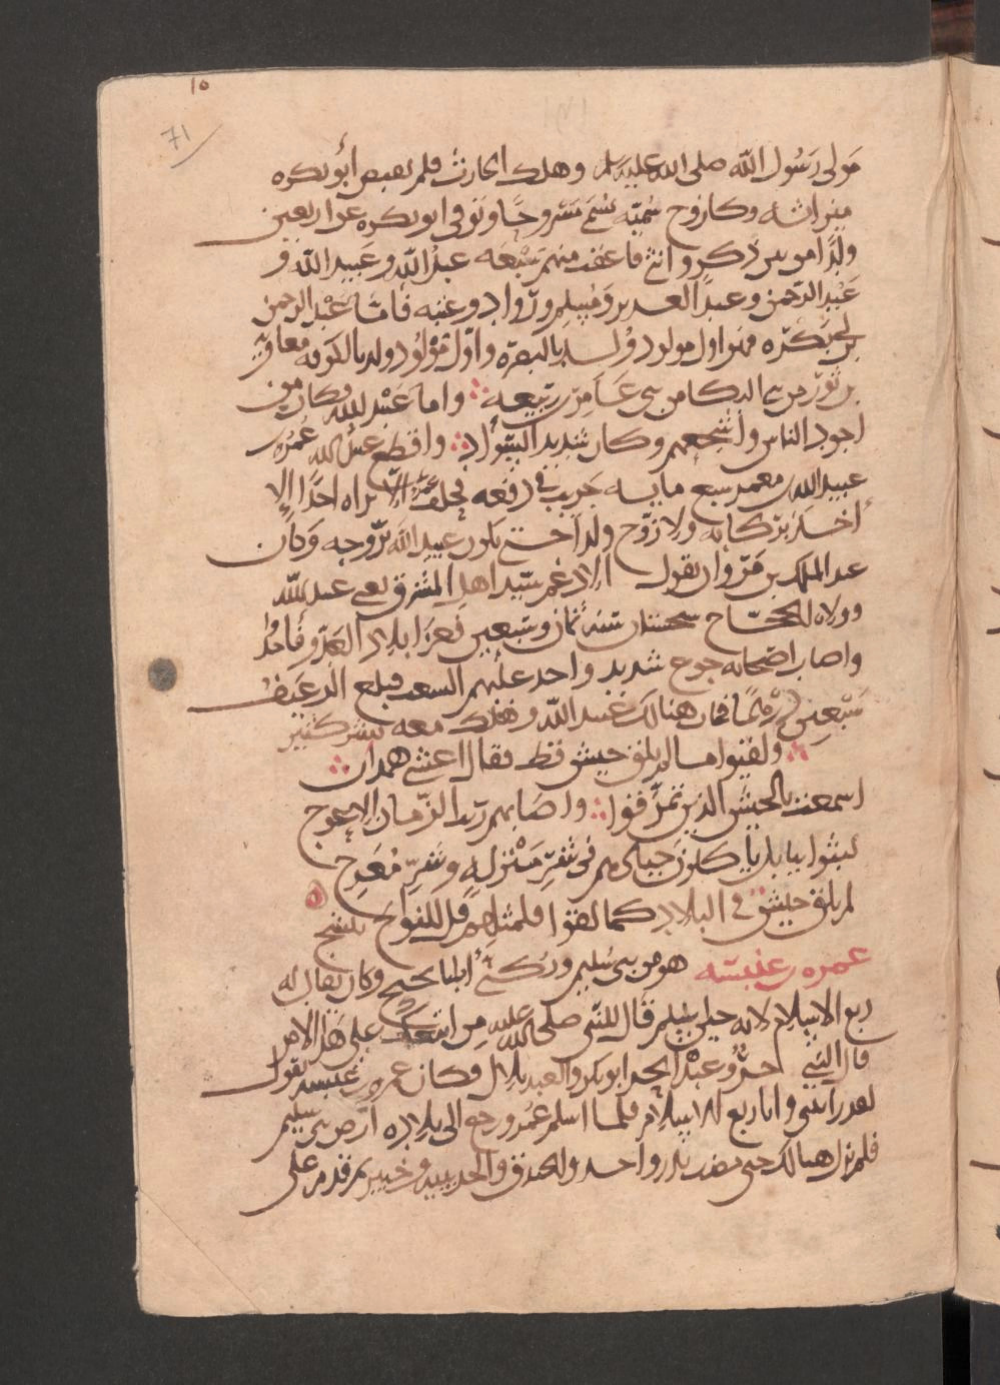 ١٥
71
مولى رسول الله صلى الله عليه وسلم وهلك الحارث فلم يقبض ابو بكره
ميراثه وكان زوج سميه يسمى مسروحا وتوفى ابو بكره عن اربعين
ولدا من بين ذكر وانثى فاعقب منهم سبعه عبد الله وعبيد الله و
عبد الرحمن وعبد العزيز ومسلم ورواد وعتبه فاما عبد الرحمن
بن ابى بكره فهو اول مولود ولد بالبصره واول مولود ولد بالكوفه معاويه
بن ثور من بنى البكا من بنى عامر بن ربيعه واما عبيد الله وكان من
اجود الناس واشجعهم وكان شديد السواد واقطع عبيد الله عمر بن
عبيد الله بن معمر سبع مايه جريب فى دفعه فحلف عمر الا يراه احدا الا
اخذ بركابه ولا زوج ولدا حتى يكون عبيد الله يزوجه وكان
عبد الملك بن مروان يقول الادغم سيد اهل المشرق يعنى عبيد الله
وولاه الحجاج سجستان سنه ثمان وسبعين فغزا بلاد العدو فاخذوا
واصاب اصحابه جوع شديد واخذ عليهم الشعب فبلغ الرغيف
سبعين درهما فمات هنالك عبيد الله وهلك معه بشر كثير
ولقيوا ما لم يلق جيش قط فقال اعشى همدان
اسمعت بالجيش الذين تمزقوا واصابهم ريب الزمان الاعوج
لبثوا بكابل ياكلون جيادهم فى شر منزله وشر معرج
لم يلق جيش فى البلاد كما لقوا فلمثلهم قل للنوايح تنشج
عمرو بن عنبسه هو من بنى سليم ويكنى ابا نجيح وكان يقال له
ربع الاسلام لانه حين اسلم قال للنبى صلى الله عليه من اتبعك على هذا الامر
قال النبى حر وعبد الحر ابو بكر والعبد بلال فكان عمرو بن عنبسه يقول
لقد رايتنى وانا ربع الاسلام فلما اسلم عمرو رجع الى بلاده ارض بنى سليم
فلم يزل هنالك حتى مضت بدر واحد والخندق والحديبيه وخيبر ثم قدم على